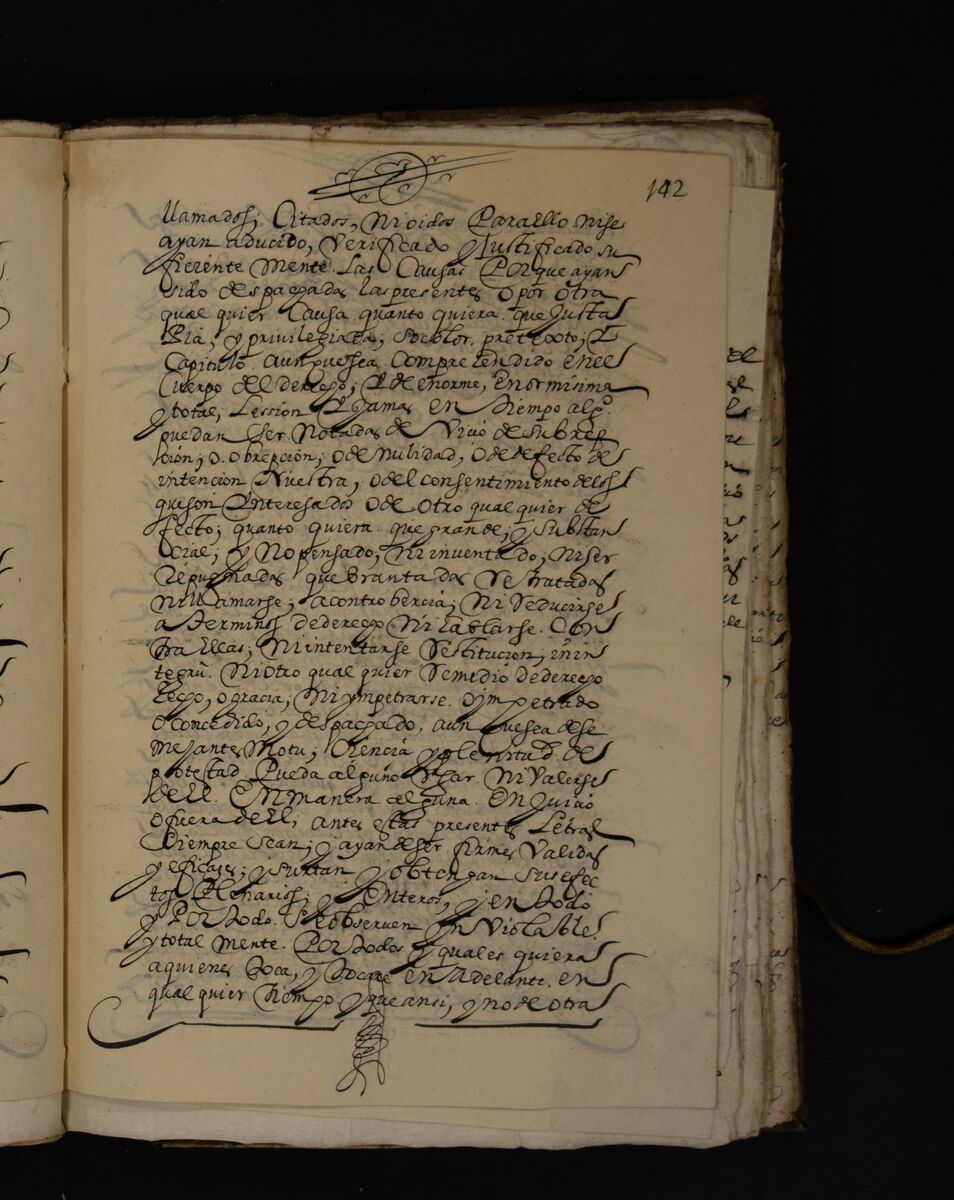 142
llamados; Citados, Ni oidos Paraello nise
ayan aducido, Verificado y Justificado su
ficiente Mente. Las Causas Porque ayan
sido despachadas las presentes o por otra
qual quier Causa quanto quiera que Justa
Pia; y privilegiada; so color, pretexto; y
Capitulo aunque sea Comprehendido en el
Cuerpo del derecho; y de enorme, enormisima
y total, Lession y Jamas en tiempo algº.
puedan ser Notadas de Vicio de subrep
cion; o obrepcion; o de nulidad, o de defecto de
intencion Nuestra, o del consentimiento de los
que son Interesados o de otro qual quier de
fecto; quanto quiera que grande, y substan
cial; y No pensado, Ni inventado; Ni ser
repugnadas quebrantadas Retratadas
Ni llamarse; a controbercia; Ni Reducirse
a terminos de derecho Ni hablarse. Con
tra ellas; Ni intentarse Restitucion; in in
tegrũ. Ni otro qual quier Remedio de derecho
hecho, o gracia; Ni ympetrarse. o ympetrado
o concedido, y despachado, aun que sea de se
mejantes Motu; Ciencia y plenitud de
potestad Pueda alguno Usar. Ni Valerse
de el. En manera alguna. En Juicio
o fuera de el; antes estas presentes Letras
Siempre sean; y ayan de ser firmes Validas
y eficases; y surtan y obtengan sus efec
tos Plenarios; y Enteros, y en todo
y Por todo. Se observen Inviolable
y total mente. Por todos y quales quiera
a quienes toca, y tocare en Adelante. en
qual quier tiempo y que ansi, y no de otra